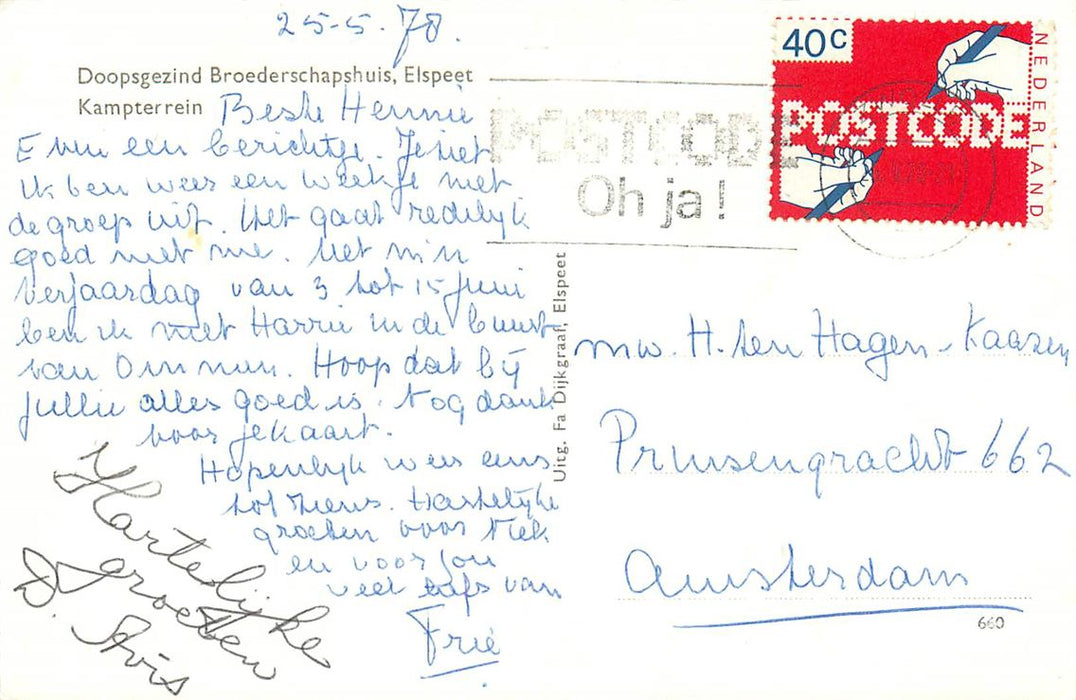 25-5-78.
Doopsgezind Broederschapshuis, Elspeet
Kampterrein
Beste Hennie
Even een berichtje. Je ziet
ik ben weer een weekje met
de groep uit. Het gaat redelijk
goed met me. Met m'n
verjaardag van 3 tot 15 juni
ben ik met Harrie in de buurt
van Ommen. Hoop dat bij
jullie alles goed is. Nog dank
voor je kaart.
Hopenlijk weer eens
tot ziens. Hartelijke
groeten voor Niek
en voor jou
veel liefs van
Frié
Hartelijke
groeten
D.
40c
NEDERLAND
POSTCODE
POSTCODE
Oh ja!
Uitg. Fa Dijkgraaf, Elspeet
mw. H. ten Hagen-Kaazen
Prinsengracht 662
Amsterdam
660